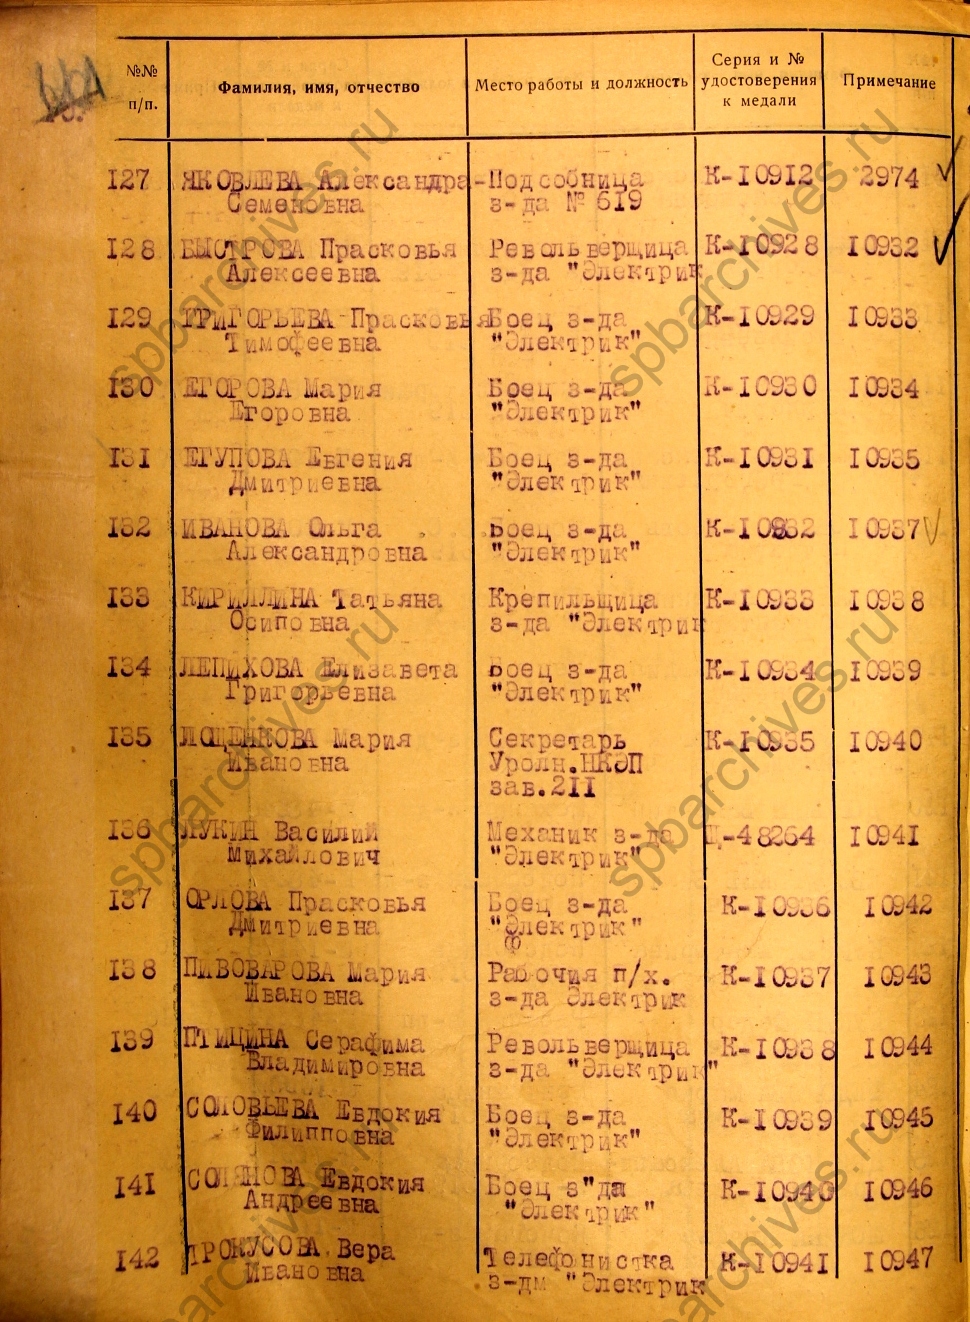 №№ п/п.
Фамилия, имя, отчество
Место работы и должность
Серия и № удостоверения к медали
Примечание
127 ЯКОВЛЕВА Александра- Подсобница К-10912 2974
Семеновна з-да № 619
128 БЫСТРОВА Прасковья Револьверщица К-10928 10932
Алексеевна з-да "Электрик
129 ГРИГОРЬЕВА Прасковья Боец з-да К-10929 10933
Тимофеевна "Электрик"
130 ЕГОРОВА Мария Боец з-да К-10930 10934
Егоровна "Электрик"
131 ЕГУПОВА Евгения Боец з-да К-10931 10935
Дмитриевна "Электрик"
132 ИВАНОВА Ольга Боец з-да К-10932 10937
Александровна "Электрик"
133 КИРИЛЛИНА Татьяна Крепильщица К-10933 10938
Осиповна з-да "Электрик
134 ЛЕПИХОВА Елизавета Боец з-да К-10934 10939
Григорьевна "Электрик"
135 ЛОЩЕНКОВА Мария Секретарь К-10935 10940
Ивановна Уполн.НКЭП
зав.211
136 ЛУКИН Василий Механик з-да Ц-48264 10941
Михайлович "Электрик"
137 ОРЛОВА Прасковья Боец з-да К-10936 10942
Дмитриевна "Электрик"
Ф
138 ПИВОВАРОВА Мария Рабочия п/х. К-10937 10943
Ивановна з-да Электрик
139 ПТИЦИНА Серафима Револьверщица К-10938 10944
Владимировна з-да "Электрик"
140 СОЛОВЬЕВА Евдокия Боец з-да К-10939 10945
Филипповна "Электрик"
141 Евдокия Боец з"да К-10940 10946
Андреевна "Электрик"
142 ТРОКУСОВА Вера Телефонистка К-10941 10947
Ивановна з-дм "Электрик
spbarchives.ru
spbarchives.ru
spbarchives.ru
spbarchives.ru
spbarchives.ru
spbarchives.ru